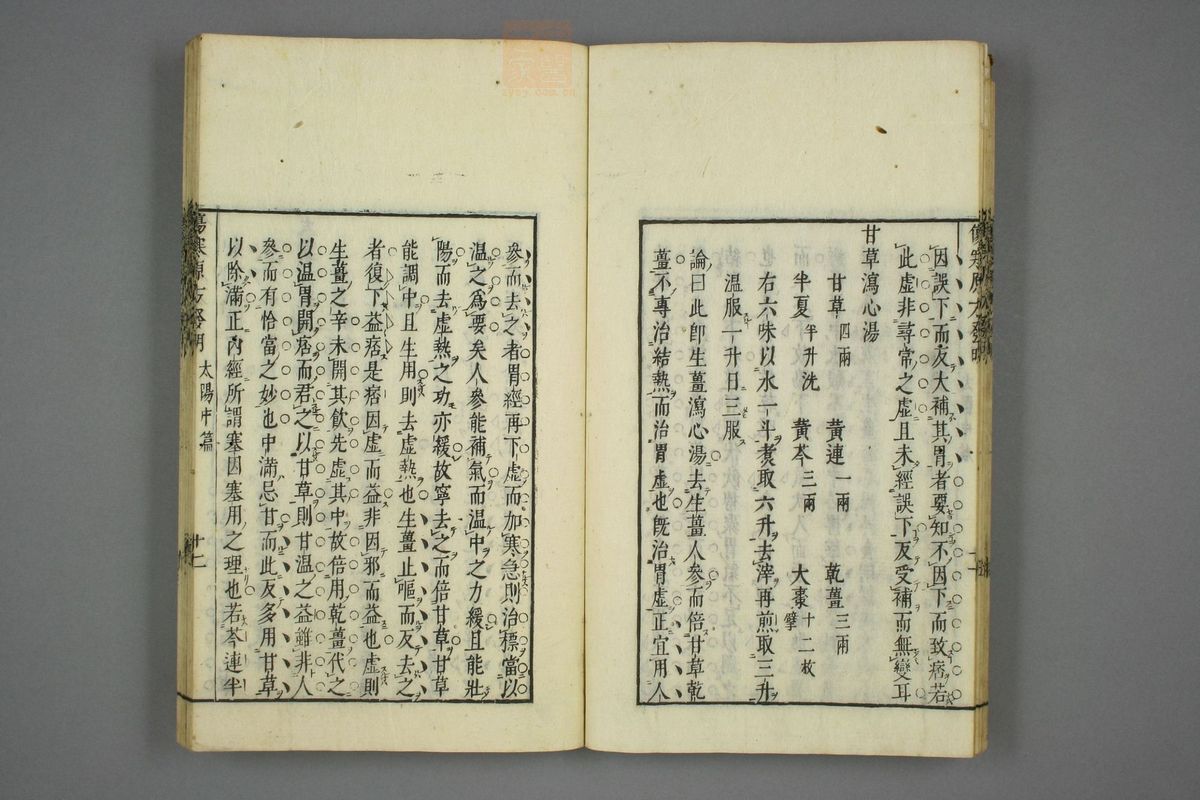 因誤下而友大補其胃者要知不因下而致痞若
此虛非尋常之虛且未經誤下友受補而無變耳
甘草瀉心湯
甘草四兩 黄連一兩 乾薑三兩
半夏半升洗 黄芩三兩 大棗十二枚擘
右六味以水一斗煮取六升去滓再煎取三升
溫服一升日三服
論曰此卽生薑瀉心湯去生薑人參而倍甘草乾
薑不專治結熱而治胃虛也旣治胃虛正宜用人
參而去之者胃經再下虛而加寒急則治標當以
溫之為要矣人參能補氣而溫中之力緩且能壯
陽而去虛熱之功亦緩故寧去之而倍甘草甘草
能調中且生用則去虛熱也生薑止嘔而反去之
者復下益痞是痞因虛而益非因邪而益也虛則
生薑之辛未開其飲先虛其中故倍用乾薑代之
以溫胃開痞而君之以甘草則甘溫之益雖非人
參而有恰當之妙也中滿忌甘而此反多用甘草
以除滿正內經所謂塞因塞用之理也若芩連半
傷寒原方發明 太陽中篇 十二